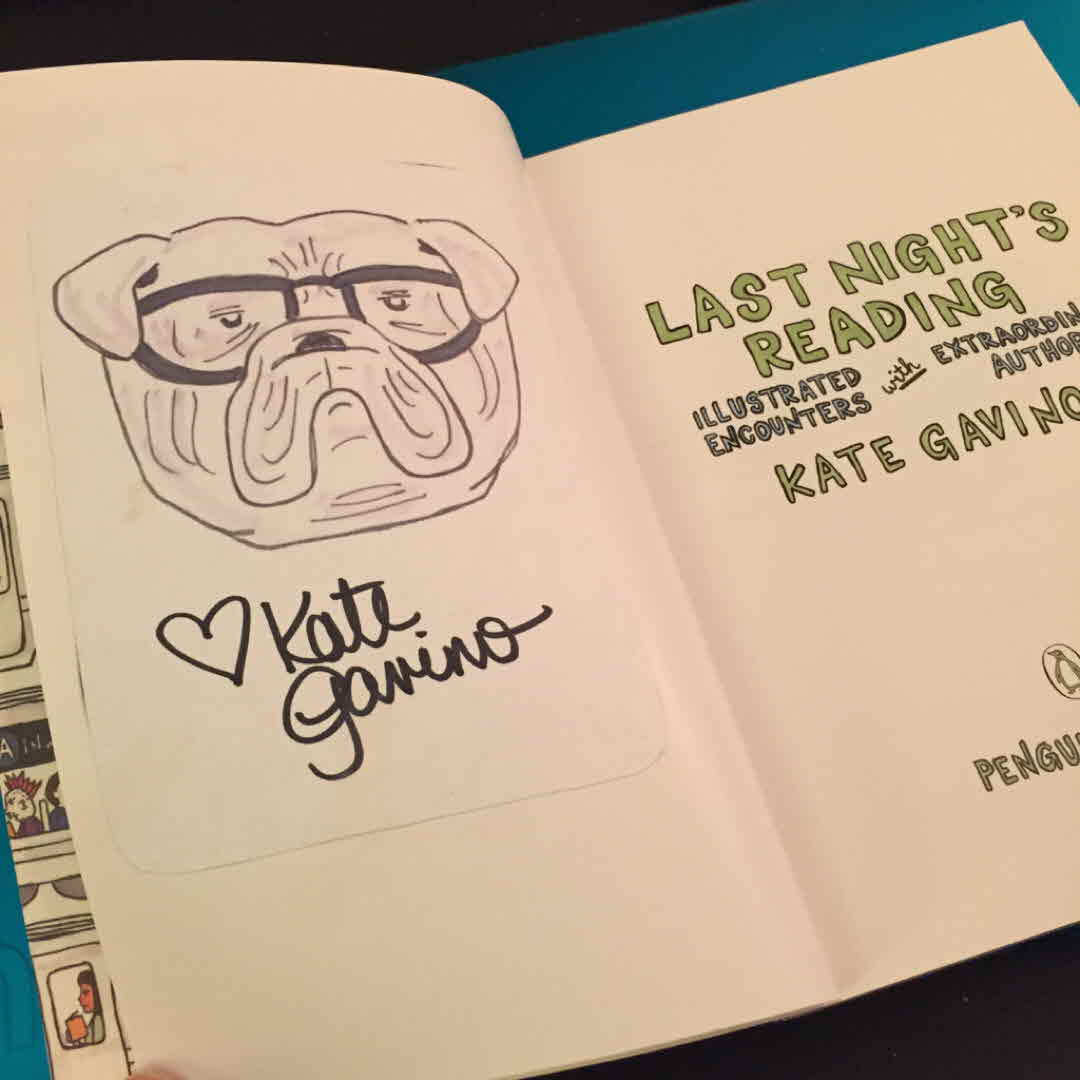 ♡ Kate
Gavino
LAST NIGHT'S
READING
ILLUSTRATED
ENCOUNTERS with EXTRAORDIN
AUTHOR
KATE GAVINO
PENGU